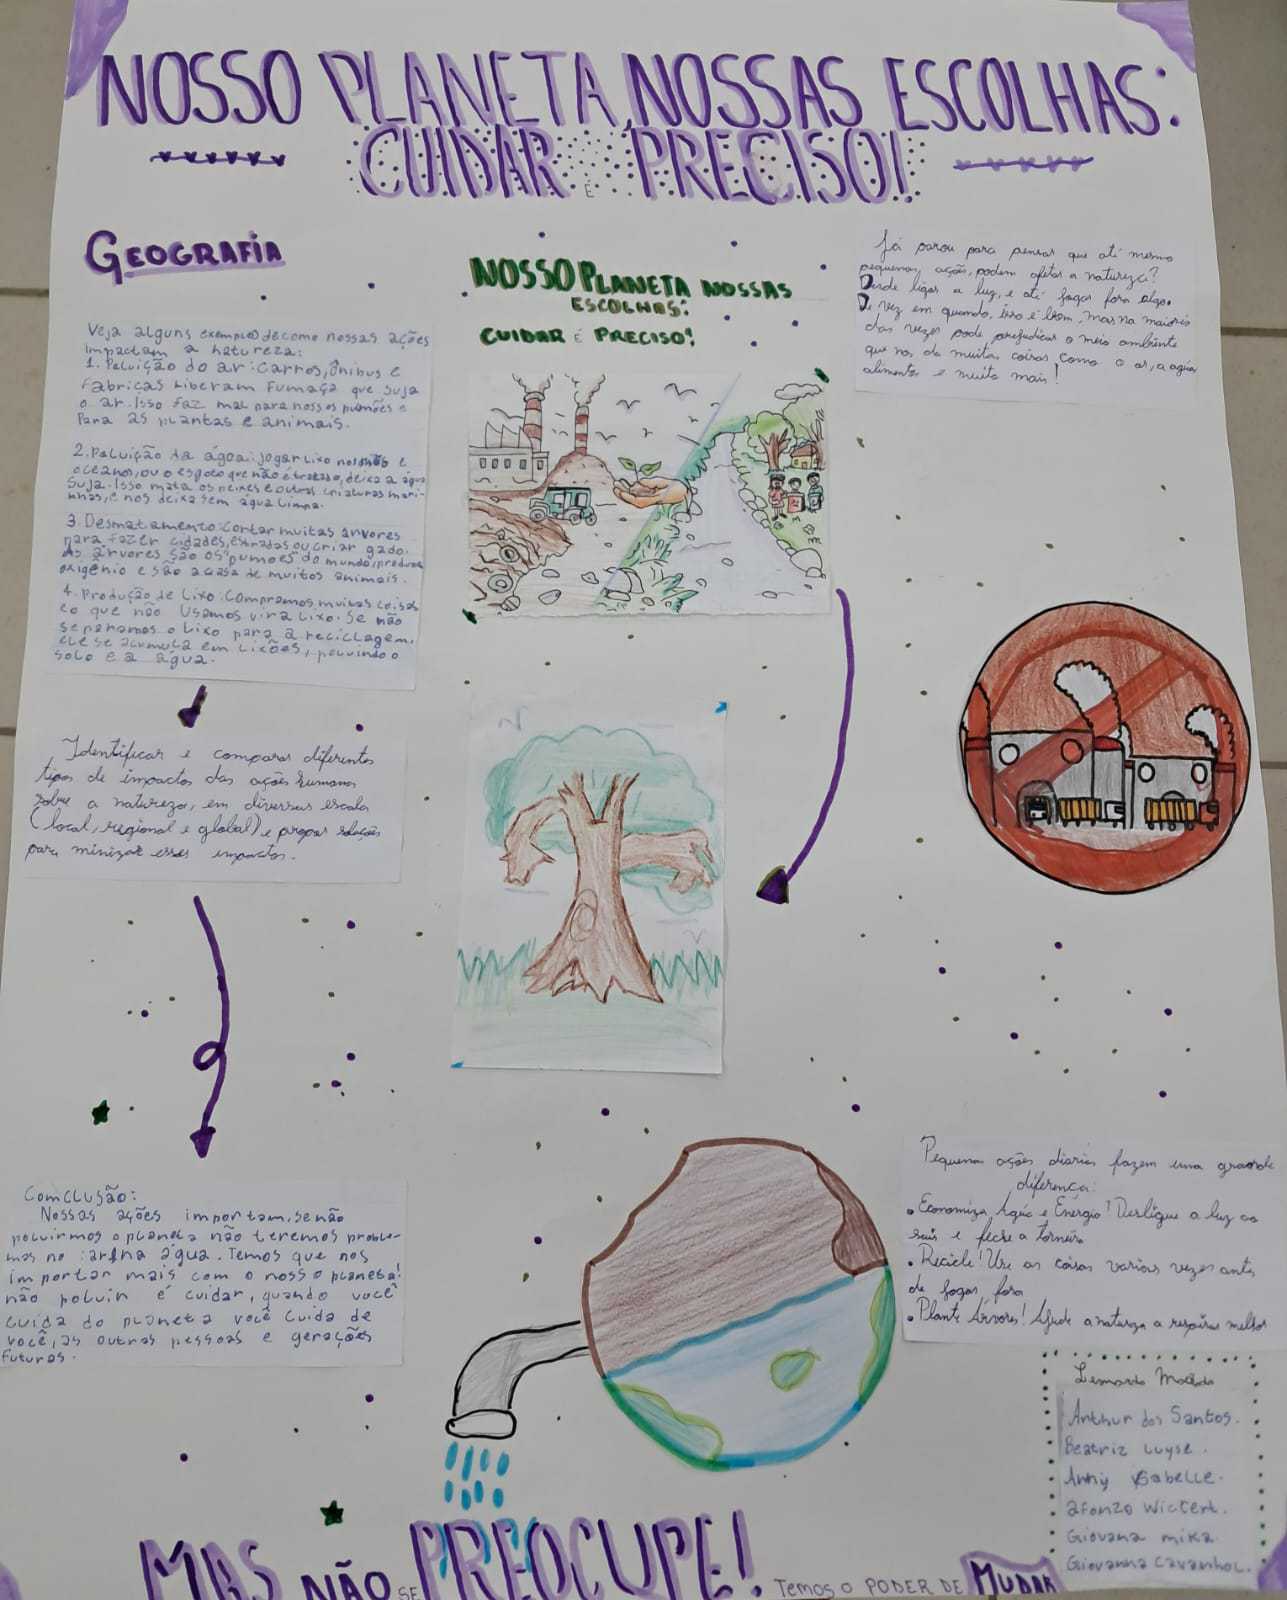 NOSSO PLANETA, NOSSAS ESCOLHAS:
CUIDAR É PRECISO!
GEOGRAFIA
Veja alguns exemplos de como nossas ações
impactam a natureza:
1. Poluição do ar: Carros, Ônibus e
Fábricas Liberam Fumaça que suja
o ar. Isso faz mal para nossos pulmões e
Para as plantas e animais.
2. Poluição da água: jogar Lixo nos rios e
oceanos, ou o esgoto que não é tratado, deixa a água
Suja. Isso mata os peixes e outras criaturas mari-
nhas, e nos deixa sem água limpa.
3. Desmatamento: Cortar muitas árvores
para fazer cidades, estradas ou criar gado.
As árvores são os "pumões do mundo, produz
oxigênio e são a casa de muitos animais.
4. Produção de Lixo: Compramos muitas coisas
e o que não Usamos vira Lixo. Se não
separamos o Lixo para a reciclagem,
ele se acumula em Lixões, poluindo o
solo e a água.
Identificar e comparar diferentes
tipos de impactos das ações humanas
sobre a natureza, em diversas escala
(local, regional e global) e propor soluções
para minizar esses impactos.
Comclusão:
Nossas ações importam, se não
poluirmos o planeta não teremos proble-
mas no ar, na água. Temos que nos
importar mais com o nosso planeta!
não poluir é cuidar, quando você
cuida do planeta você cuida de
você, as outras pessoas e gerações
Futuras.
NOSSO PLANETA NOSSAS
ESCOLHAS:
CUIDAR É PRECISO!
Já parou para pensar que até mesmo
pequenas ações, podem afetar a natureza?
Desde ligar a luz, e até jogar fora algo.
De vez em quando, isso é bom, mas na maioria
das vezes pode prejudicar o meio ambiente
que nos da muitas coisas como o ar, a agua,
alimentos e muito mais!
Pequenas ações diarias fazem uma graande
diferença:
• Economiza Água e Energia! Desligue a luz ao
sair e feche a torneira
• Recicle! Use as coisas varias vezes antes
de jogar fora
• Plante Árvores! Ajude a natureza a respirar melhor
Arthur dos Santos.
Beatriz Luyse.
Anny Ysabelle.
afonzo Wickert.
Giovana mika.
Giovanna Cavanhol.
MAS NÃO SE PREOCUPE! TEMOS O PODER DE MUDAR